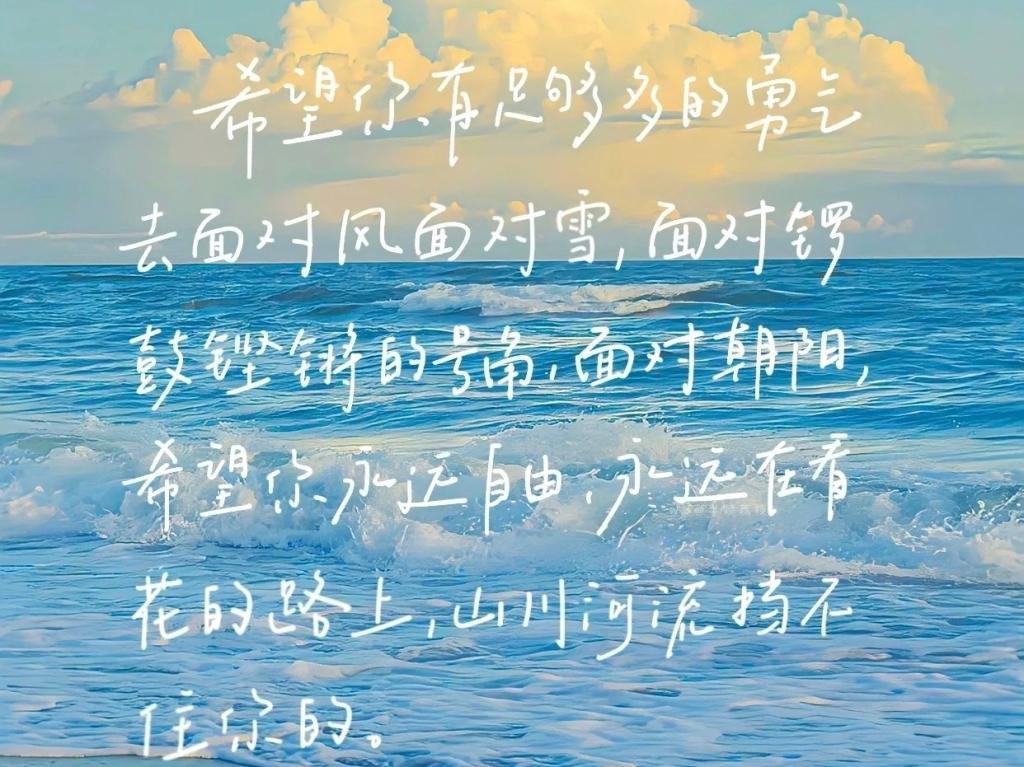 希望你有足够多的勇气
去面对风面对雪,面对锣
鼓铿锵的号角,面对朝阳,
希望你永远自由,永远在看
花的路上,山川河流挡不
住你的。